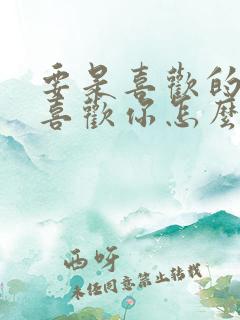 要是喜歡的
喜歡你怎麼
西呀
未經同意禁止轉載